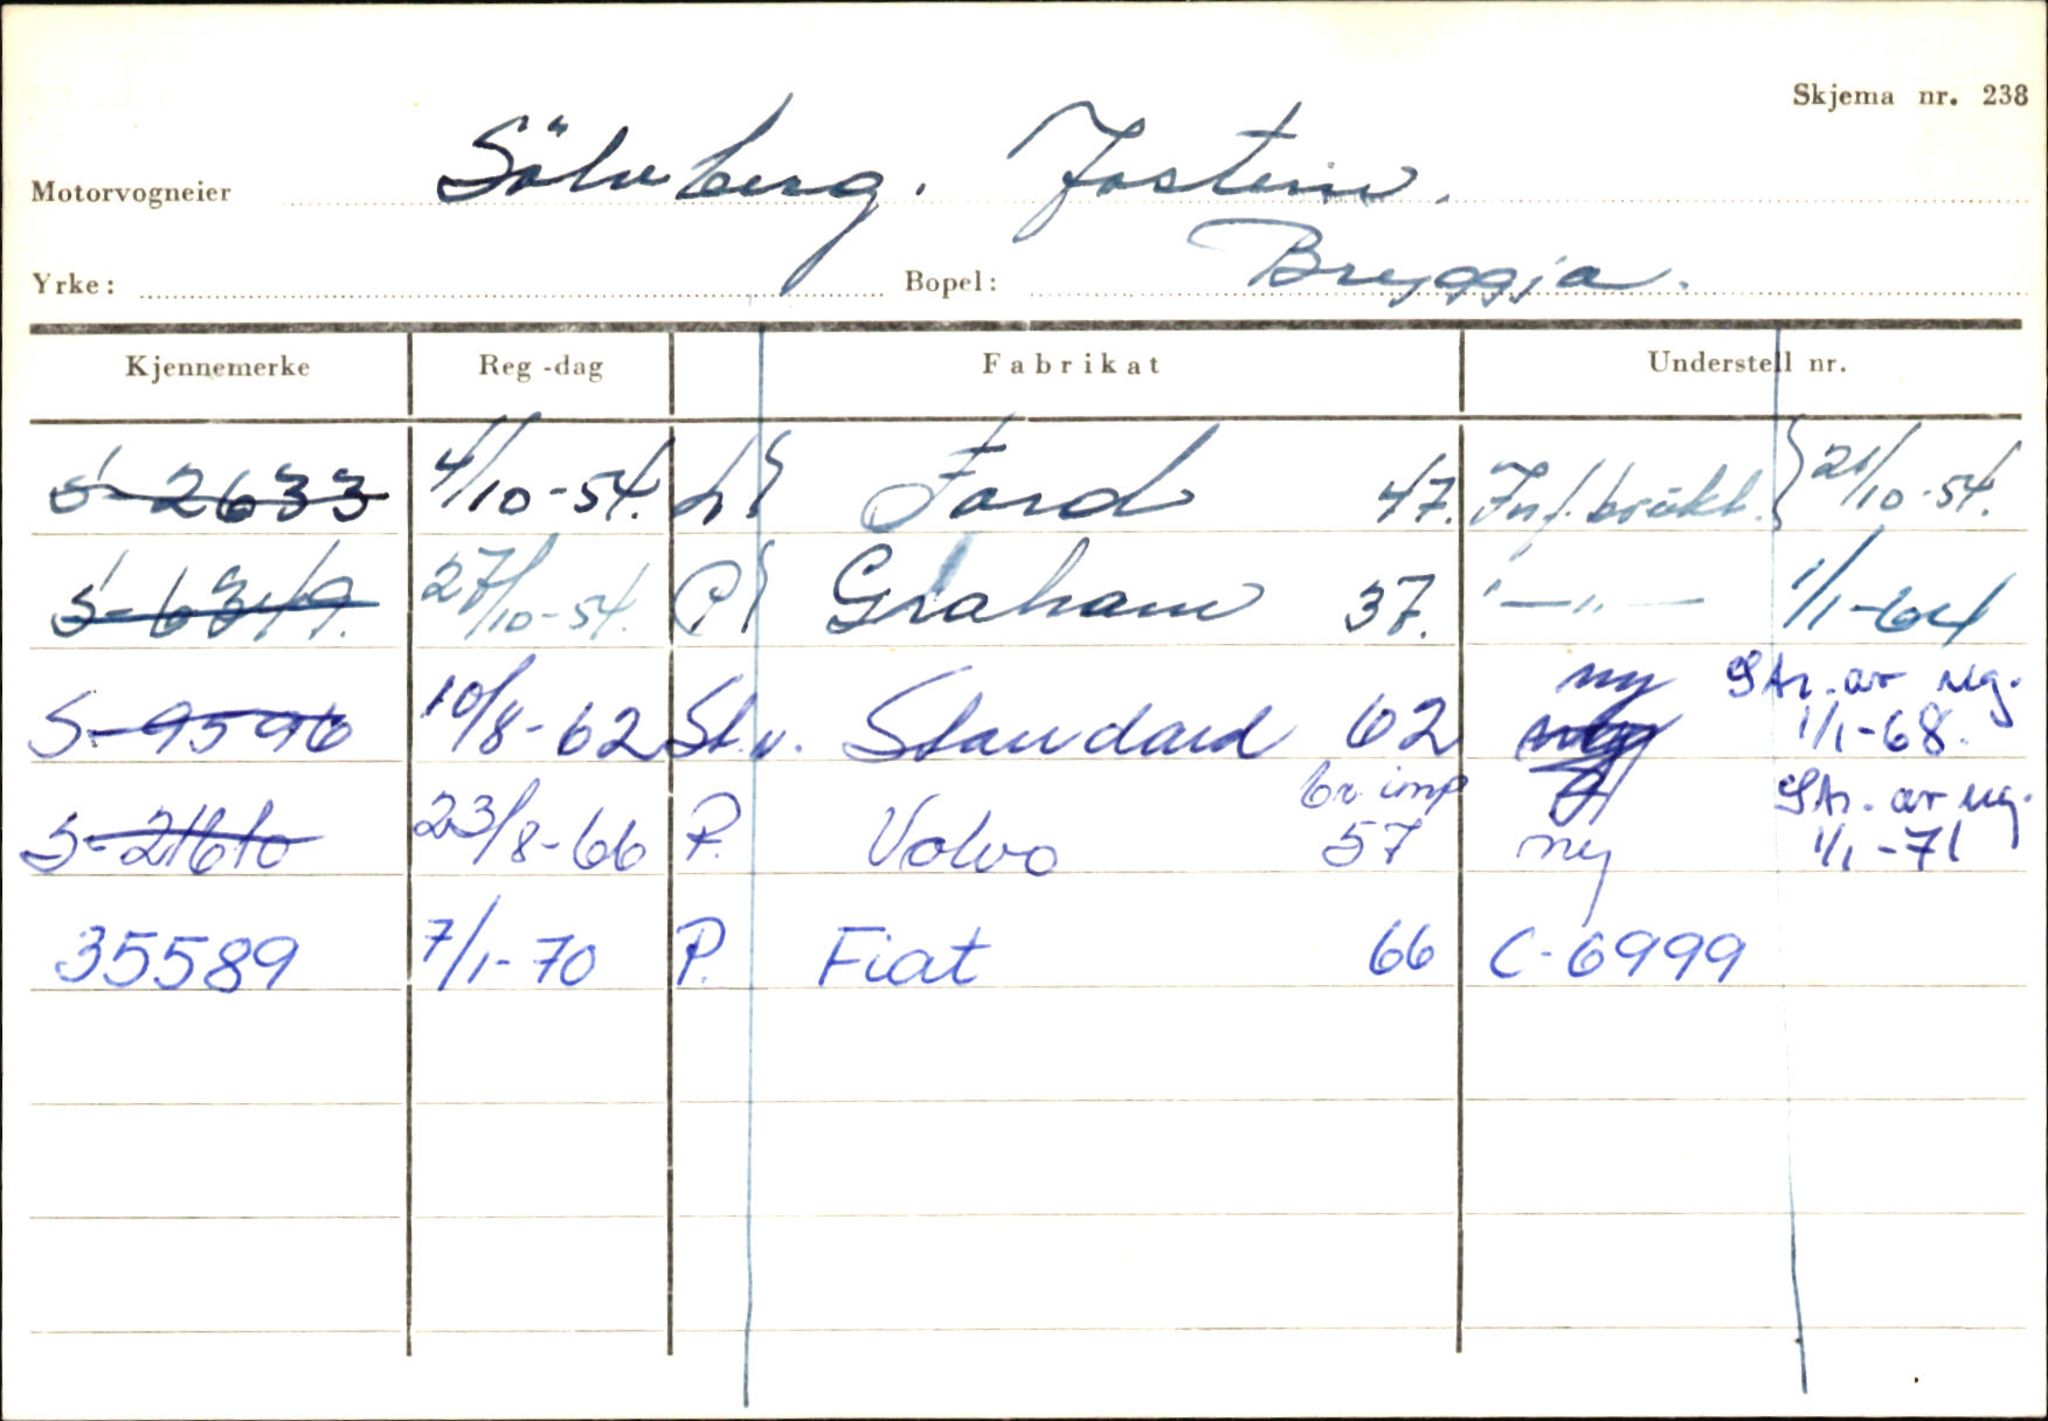 Skjema nr. 238
Motorvogneier Sölvberg. Jostein.
Yrke: Bopel: Bryggja.
Kjennemerke Reg-dag Fabrikat Understell nr.
S-2633 4/10-54. L Ford 47. Inf. brukt. 21/10-54.
S-6319. 27/10-54. P Graham 37. -"- 1/1-64
ny Str. av reg.
S-9596 10/8-62 St.v. Standard 62 1/1-68.
br imp Str. av reg.
S-21610 23/8-66 P. Volvo 57 ny 1/1-71
35589 7/1-70 P. Fiat 66 C-6999